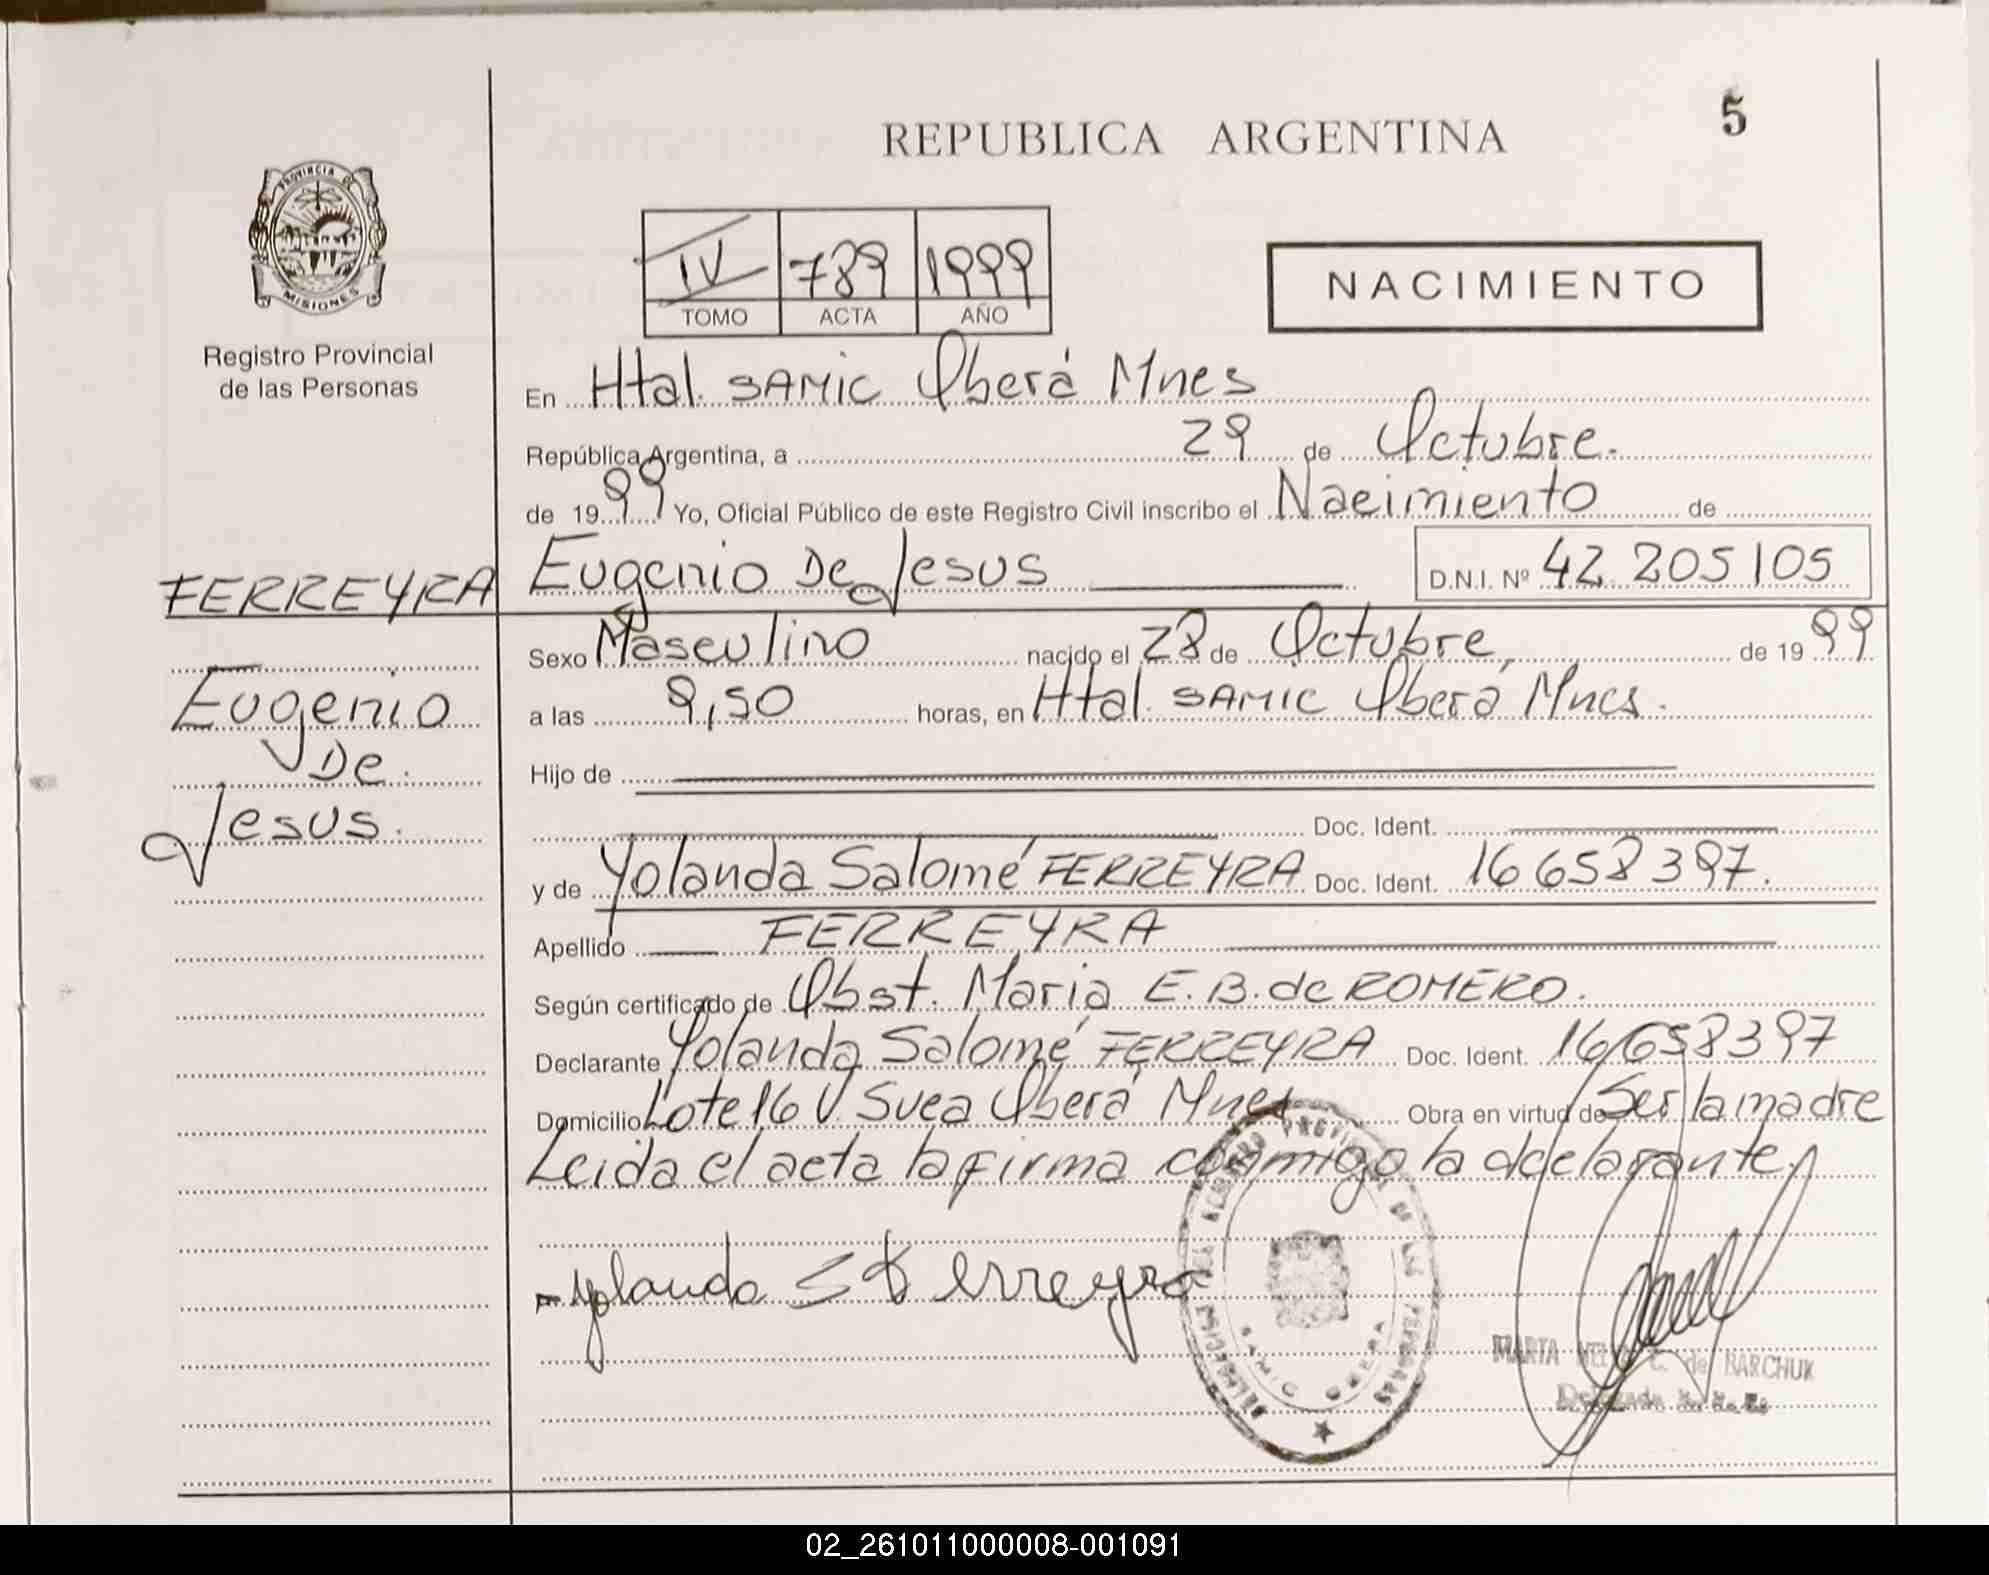 5
REPUBLICA ARGENTINA
PROVINCIA DE
MISIONES
Registro Provincial
de las Personas
IV 789 1999
TOMO ACTA AÑO
NACIMIENTO
En Htal. SAMIC Oberá Mnes
República Argentina, a 29 de Octubre.
de 1999 Yo, Oficial Público de este Registro Civil inscribo el Nacimiento de
FERREYRA
Eugenio De Jesus
D.N.I. Nº 42 205 105
Eugenio
De
Jesus.
Sexo Masculino nacido el 28 de Octubre, de 1999
a las 9,50 horas, en Htal. SAMIC Oberá Mnes.
Hijo de
Doc. Ident.
y de Yolanda Salomé FERREYRA Doc. Ident. 16 658 397.
Apellido FERREYRA
Según certificado de Obst. Maria E. B. de ROMERO.
Declarante Yolanda Salomé FERREYRA Doc. Ident. 16 658 397
Domicilio Lote 16 V. Svea Oberá Mnes Obra en virtud de Ser la madre
Leida el acta la firma conmigo la declarante
Yolanda S Ferreyra
DELEGACION REGISTRO PROVINCIAL DE LAS PERSONAS
SAMIC OBERA
MARTA C. de BARCHUK
Delegada
02_261011000008-001091